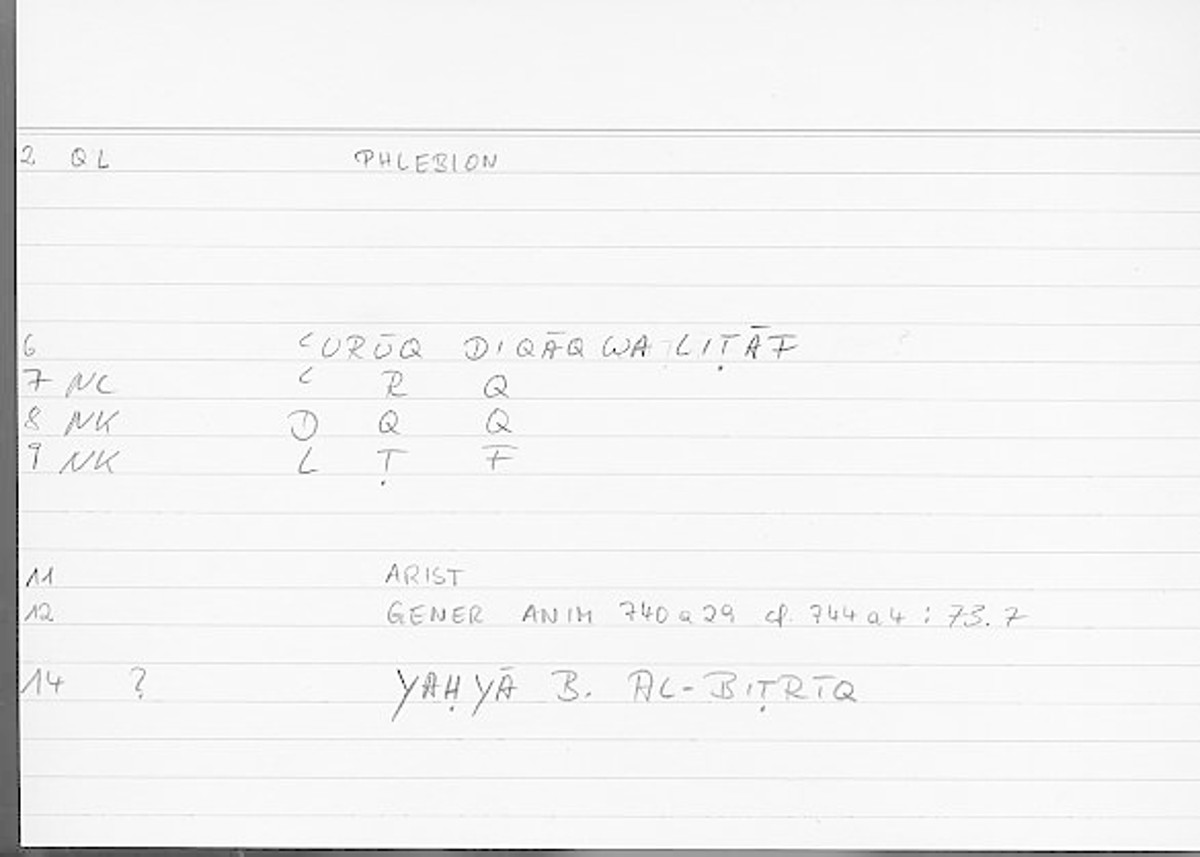 2 QL PHLEBION
6 ʿURŪQ DIQĀQ WA LIṬĀF
7 NL ʿ R Q
8 NK D Q Q
9 NK L Ṭ F
11 ARIST
12 GENER ANIM 740 a 29 cf. 744 a 4 : 73.7
14 ? YAḤYĀ B. AL-BIṬRĪQ